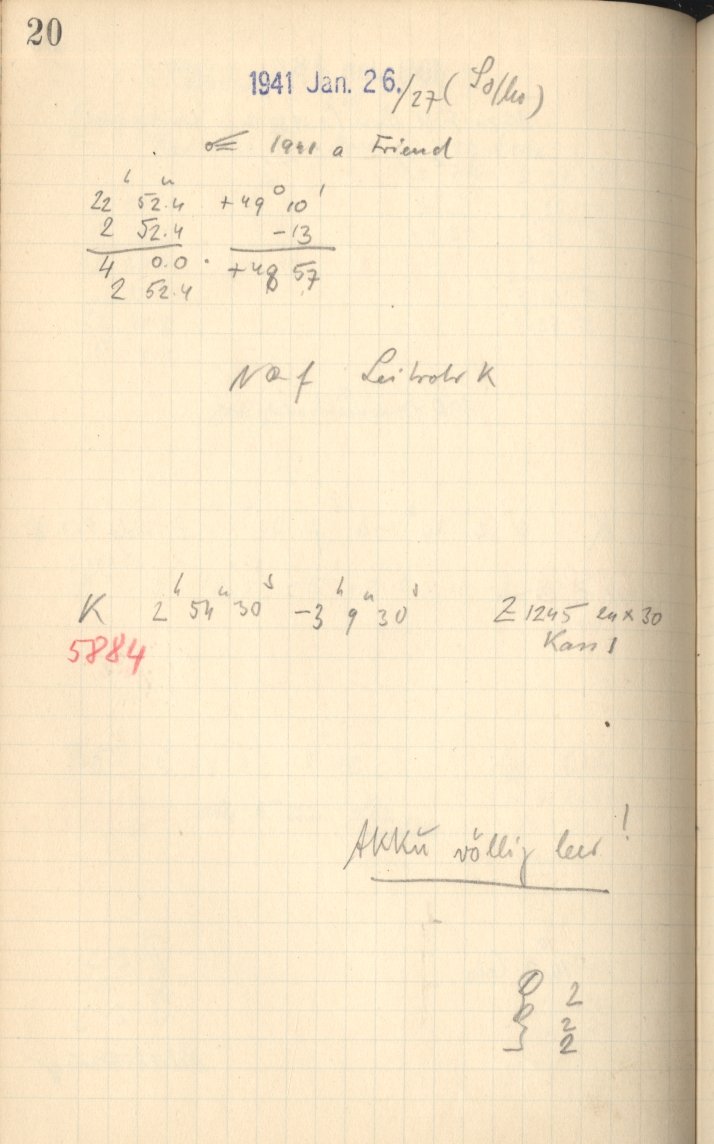 20
1941 Jan. 26./27 (So/Mo)
☄ 1941 a Friend
22ʰ 52.4ᵐ +49° 10'
2 52.4 -13
4 0.0 +48 57
2 52.4
Leitrohr K
K 2ʰ 54ᵐ 30ˢ -3ʰ 9ᵐ 30ˢ Z 1245 en x 30
5884 Kass 1
Akku völlig leer!
2
2
2